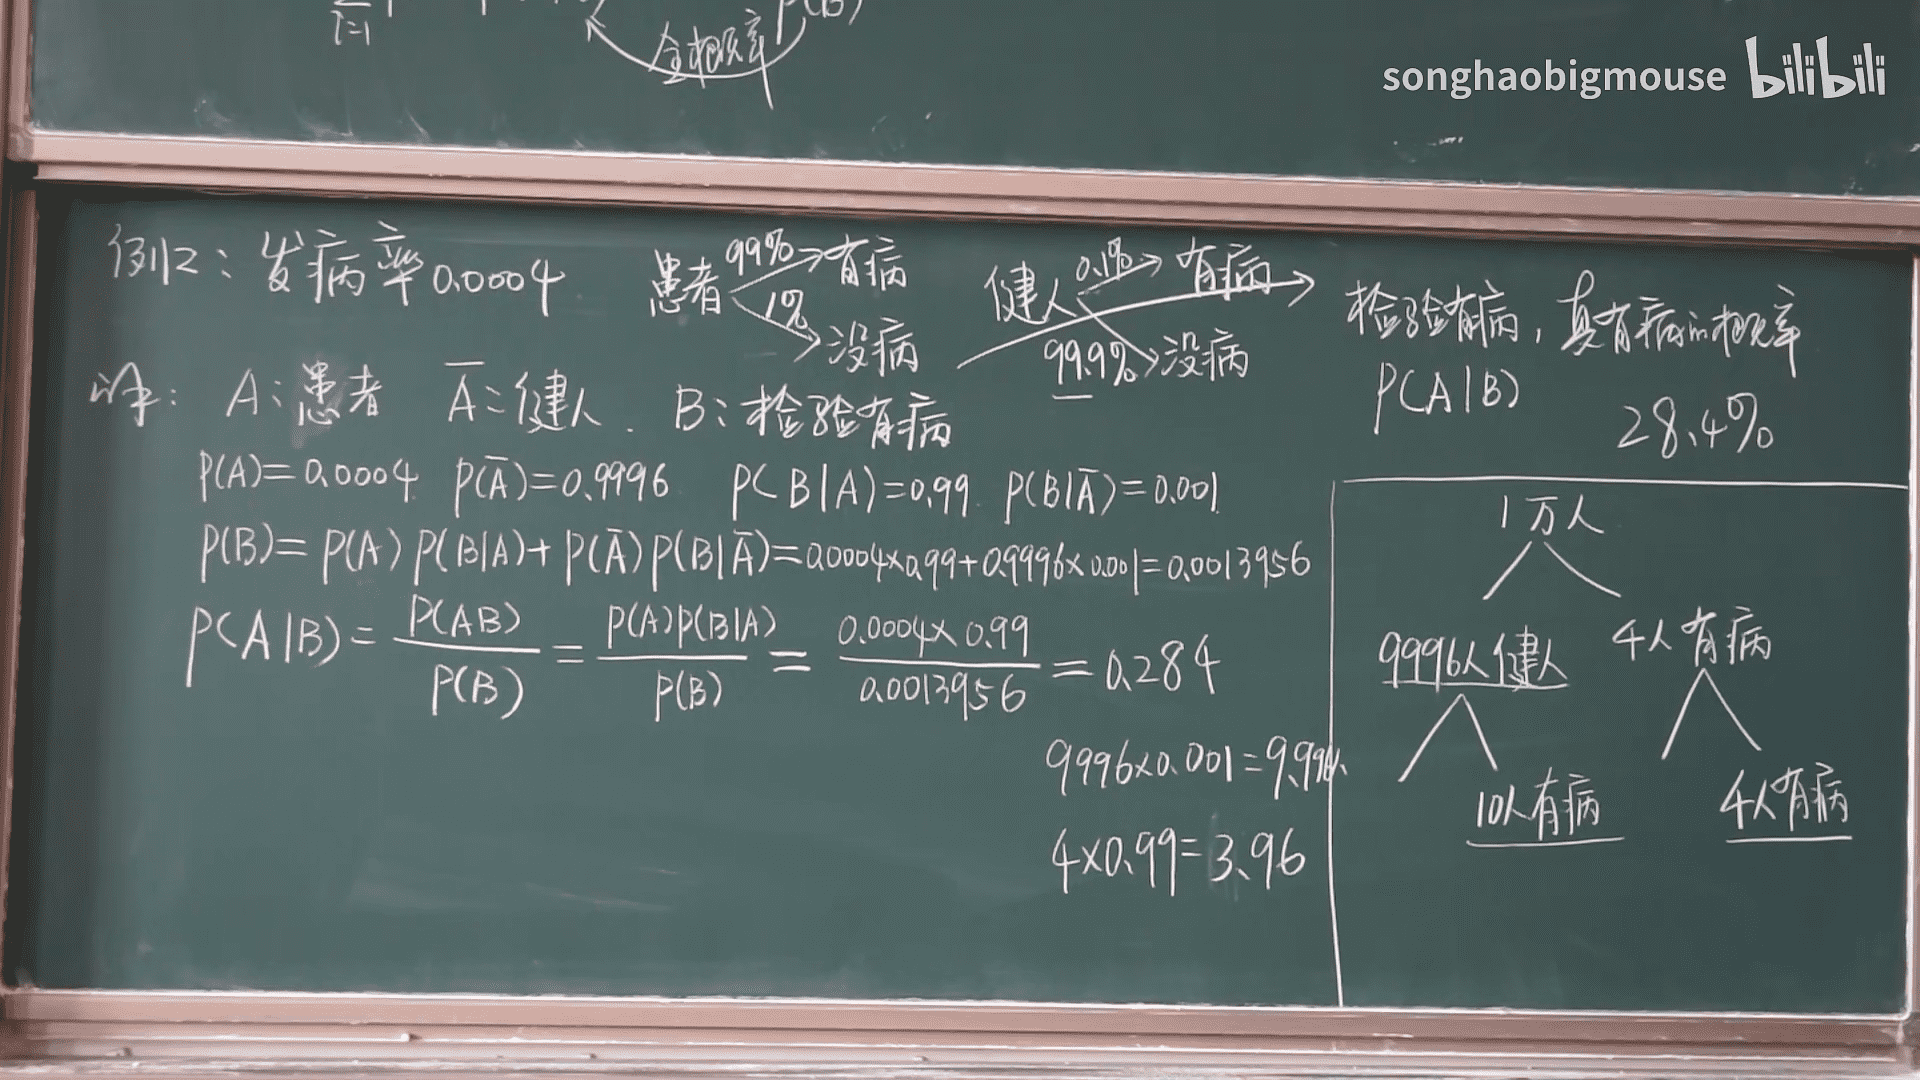 i=1
全概率
P(B)
songhaobigmouse bilibili
例2：发病率0.0004
患者
99% 有病
1% 没病
健人
0.1% 有病
99.9% 没病
检验有病，真有病的概率
P(A|B)
28.4%
解：A：患者 Ā：健人． B：检验有病
P(A)=0.0004 P(Ā)=0.9996 P(B|A)=0.99 P(B|Ā)=0.001
P(B)=P(A)P(B|A)+P(Ā)P(B|Ā)=0.0004×0.99+0.9996×0.001=0.0013956
P(A|B)=P(AB)/P(B)=P(A)P(B|A)/P(B)=0.0004×0.99/0.0013956=0.284
9996×0.001=9.996
4×0.99=3.96
1万人
9996人健人 4人有病
10人有病 4人有病